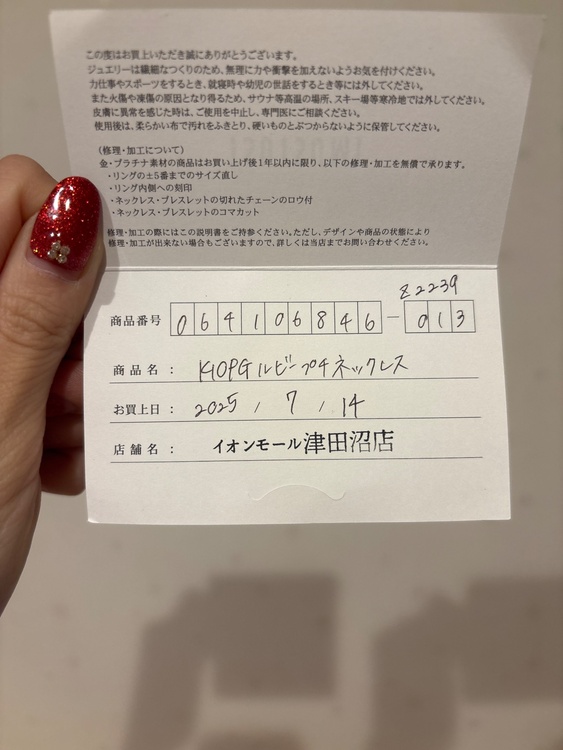 この度はお買上いただき誠にありがとうございます。
ジュエリーは繊細なつくりのため、無理に力や衝撃を加えないようお気を付けください。
力仕事やスポーツをするとき、就寝時や幼児の世話をするとき等には外してください。
また火傷や凍傷の原因となり得るため、サウナ等高温の場所、スキー場等寒冷地では外してください。
皮膚に異常を感じた時は、ご使用を中止し、専門医にご相談ください。
使用後は、柔らかい布で汚れをふきとり、硬いものとぶつからないように保管してください。
(修理・加工について)
金・プラチナ素材の商品はお買い上げ後1年以内に限り、以下の修理・加工を無償で承ります。
・リングの±5番までのサイズ直し
・リング内側への刻印
・ネックレス・ブレスレットの切れたチェーンのロウ付
・ネックレス・ブレスレットのコマカット
修理・加工の際にはこの説明書をご持参ください。ただし、デザインや商品の状態により
修理・加工が出来ない場合もございますので、詳しくは当店までお問い合わせください。
Z2239
商品番号 064106846-013
商品名: K10PGルビープチネックレス
お買上日: 2025 / 7 / 14
店舗名: イオンモール津田沼店